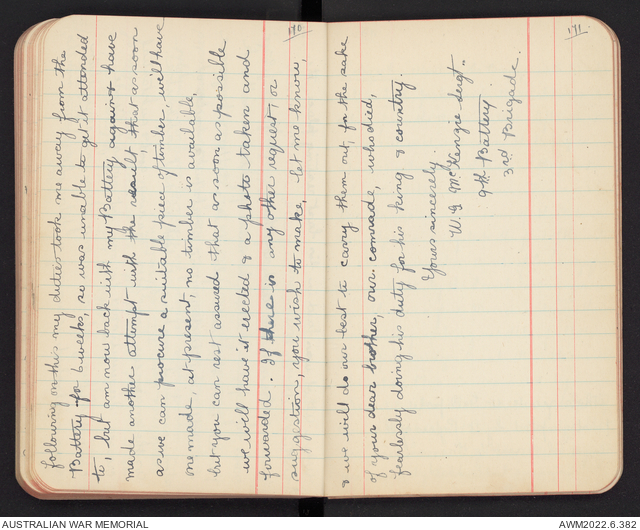 170
following on this my duties took me away from the
Battery for 6 weeks, so was unable to get it attended
to, but am now back with my Battery again & have
made another attempt with the result, that as soon
as we can procure a suitable piece of timber, will have
one made, at present, no timber is available,
but you can rest assured that as soon as possible
we will have it erected & a photo taken and
forwarded. If there is any other request, or
suggestion, you wish to make, let me know,
171
& we will do our best to carry them out, for the sake
of your dear brother, our comrade, who died,
fearlessly doing his duty for his king & country.
Yours sincerely
W. J McKenzie Sergt
9th Battery
3rd Brigade.
AUSTRALIAN WAR MEMORIAL
AWM2022.6.382